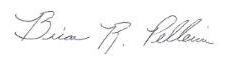 Brian R. Pellerin